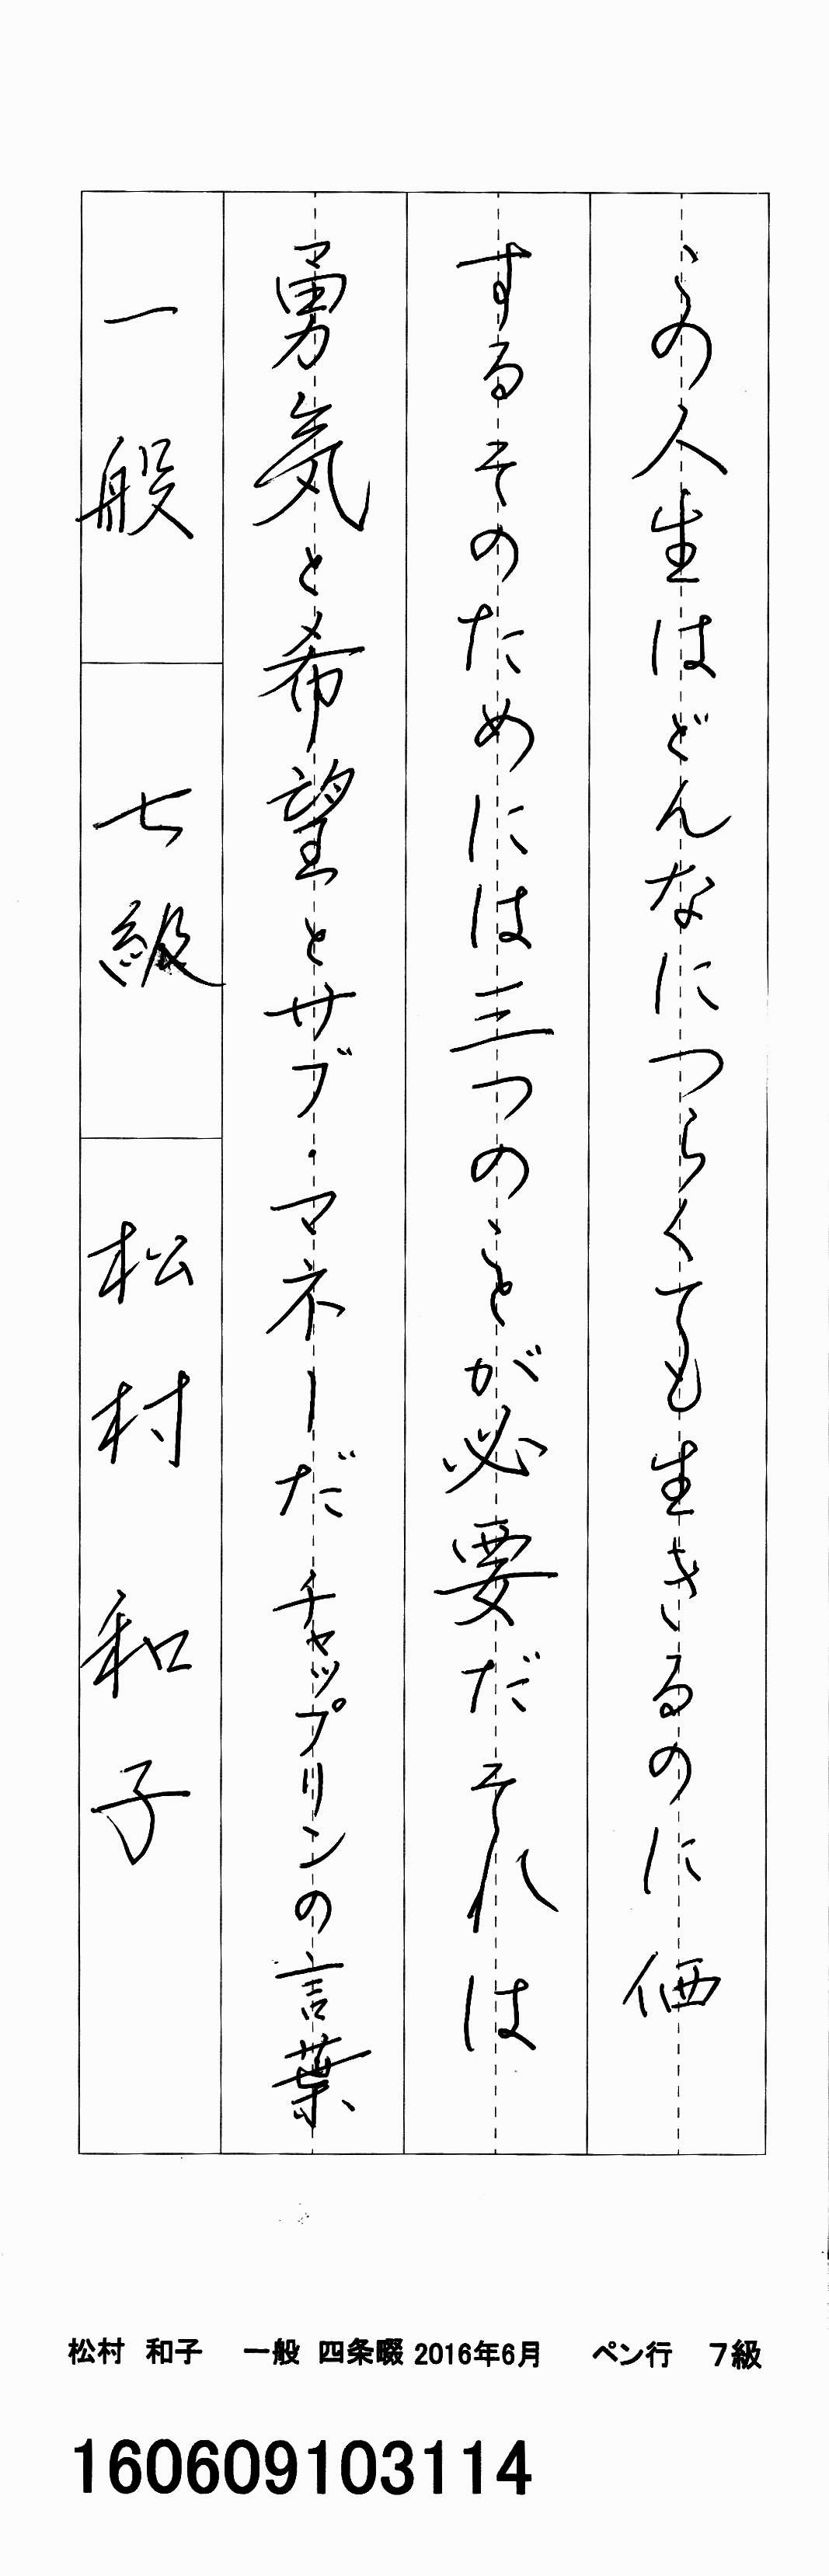 この人生はどんなにつらくても生きるのに価
するそのためには三つのことが必要だそれは
勇気と希望とサブ・マネーだ チャップリンの言葉
一般 七級 松村 和子
松村 和子 一般 四条畷 2016年6月 ペン行 7級
160609103114